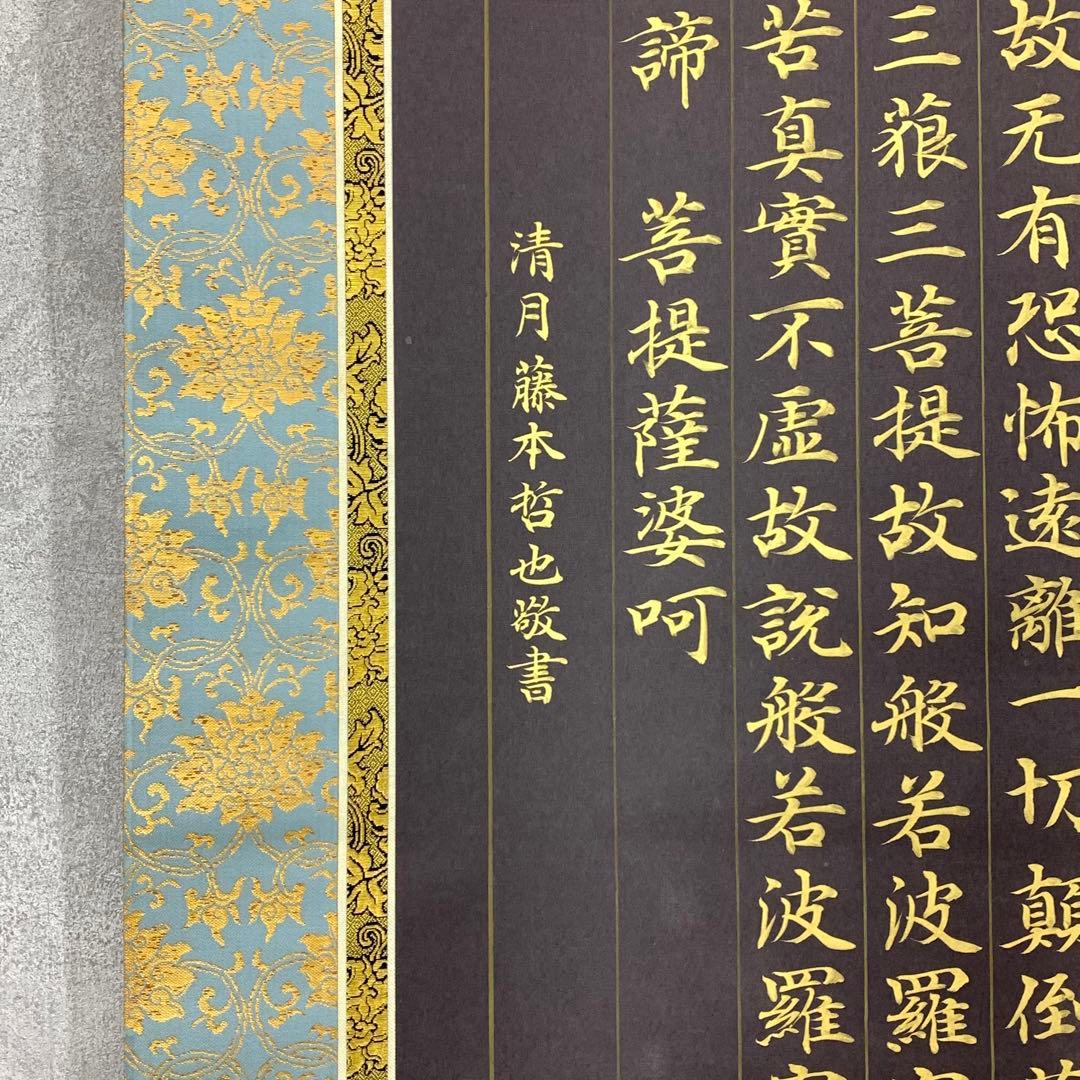 故无有恐怖遠離一切顛倒
三藐三菩提故知般若波羅
苦真實不虛故說般若波羅
諦 菩提薩婆呵
清月藤本哲也敬書